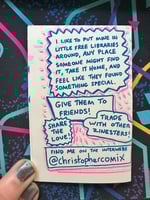 I LIKE TO PUT MINE IN
LITTLE FREE LIBRARIES
AROUND, ANY PLACE
SOMEONE MIGHT FIND
IT, TAKE IT HOME, AND
FEEL LIKE THEY FOUND
SOMETHING SPECIAL.
GIVE THEM TO
FRIENDS!
SHARE
THE
LOVE!
TRADE
WITH OTHER
ZINESTERS!
FIND ME ON THE INTERWEBS
@christophercomix